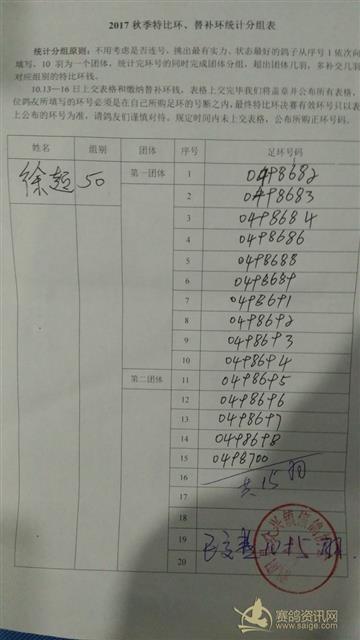 2017 秋季特比环、替补环统计分组表
统计分组原则：不用考虑是否连号，挑出最有实力、状态最好的鸽子从序号1依次向
填写，10 羽为一个团体，统计完环号的同时完成团体分组，超出团体几羽，多补交几羽
对应组别的特比环钱。
10.13—16 日上交表格和缴纳替补环钱，表格上交完毕我们将盖章并公布所有表格，
位鸽友所填写的环号必须是在自己所购足环的号断之内，最终特比环决赛有效环号只以表
上公布的环号为准，请鸽友们谨填对待。规定时间内未上交表格，公布所购正环号码。
姓名 组别 团体 序号 足环号码
徐超 50 第一团体 1 0498682
2 0498683
3 0498684
4 0498686
5 0498688
6 0498689
7 0498691
8 0498692
9 0498693
10 0498694
第二团体 11 0498695
12 0498696
13 0498697
14 0498698
15 0498700
16 共15羽
17
18
19
20
赛鸽资讯网
www.saige.com